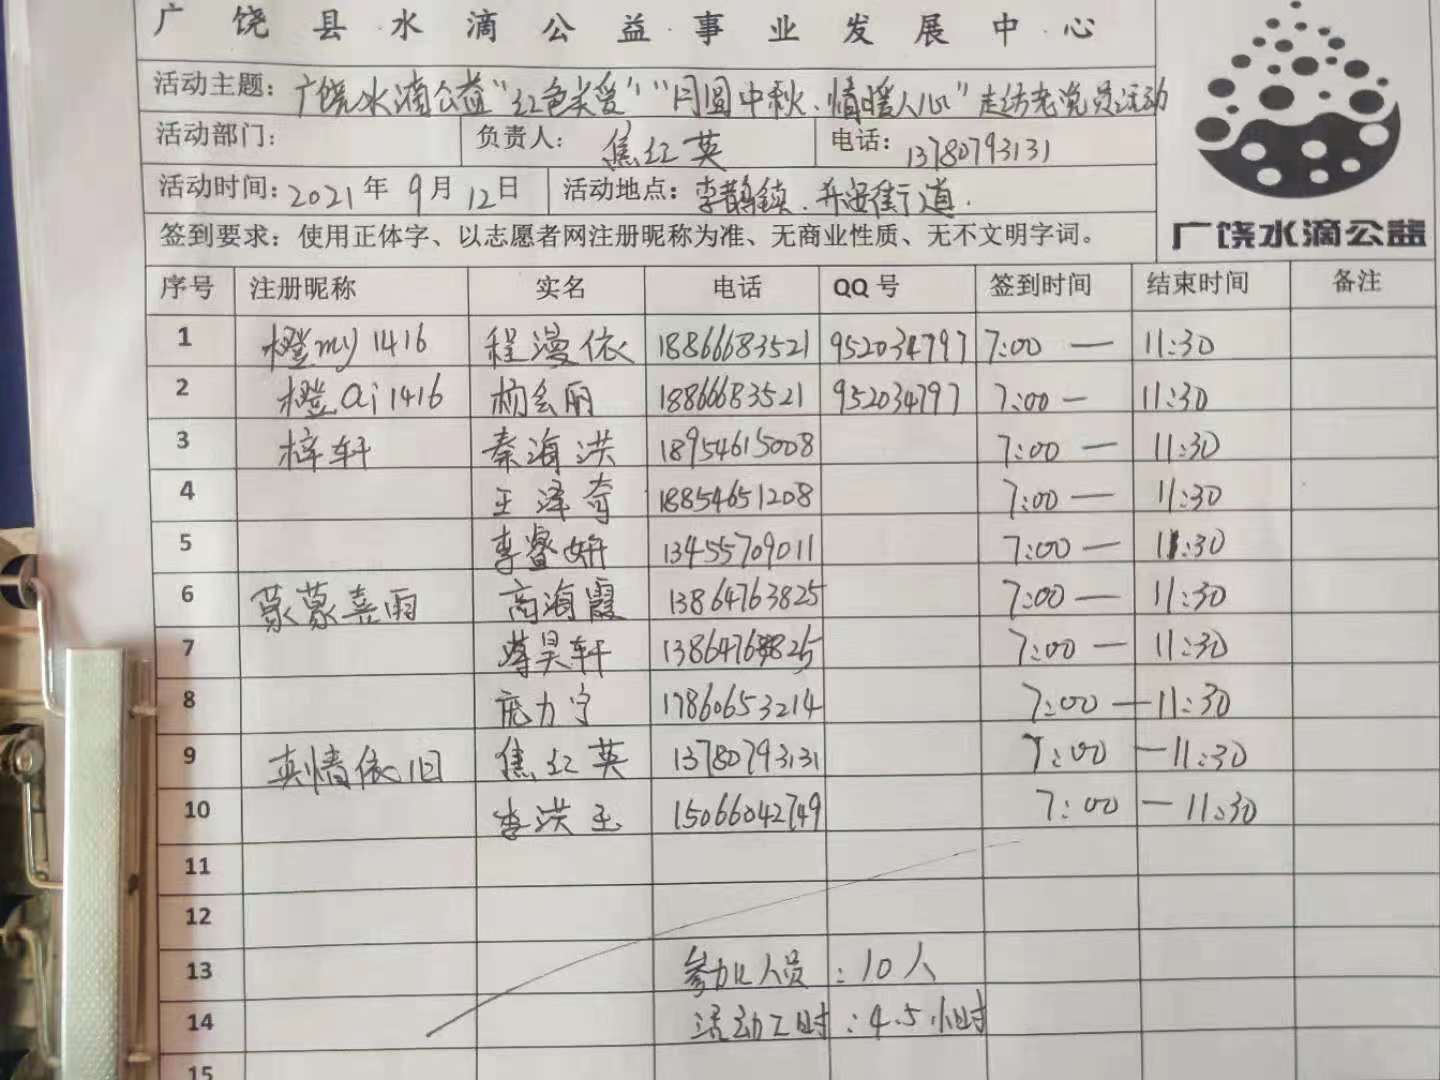 广饶县水滴公益事业发展中心
活动主题：广饶水滴公益"红色关爱""月圆中秋、情暖人心"走访老党员活动
活动部门： 负责人：焦红英 电话：13780793131
活动时间：2021年9月12日 活动地点：李鹊镇、乐安街道.
签到要求：使用正体字、以志愿者网注册昵称为准、无商业性质、无不文明字词。
广饶水滴公益
序号 注册昵称 实名 电话 QQ号 签到时间 结束时间 备注
1 橙my1416 程漫依 18866683521 952034797 7:00 — 11:30
2 橙ai1416 杨会丽 18866683521 952034797 7:00 — 11:30
3 梓轩 秦海洪 18954615008 7:00 — 11:30
4 王泽奇 18854651208 7:00 — 11:30
5 李睿妍 13455709011 7:00 — 11:30
6 蒙蒙喜雨 高海霞 13864763825 7:00 — 11:30
7 昊轩 13864763825 7:00 — 11:30
8 庞力宁 17860653214 7:00 — 11:30
9 真情依旧 焦红英 13780793131 7:00 — 11:30
10 李洪玉 15066042749 7:00 — 11:30
11
12
13 参加人员：10人
14 活动工时：4.5小时
15